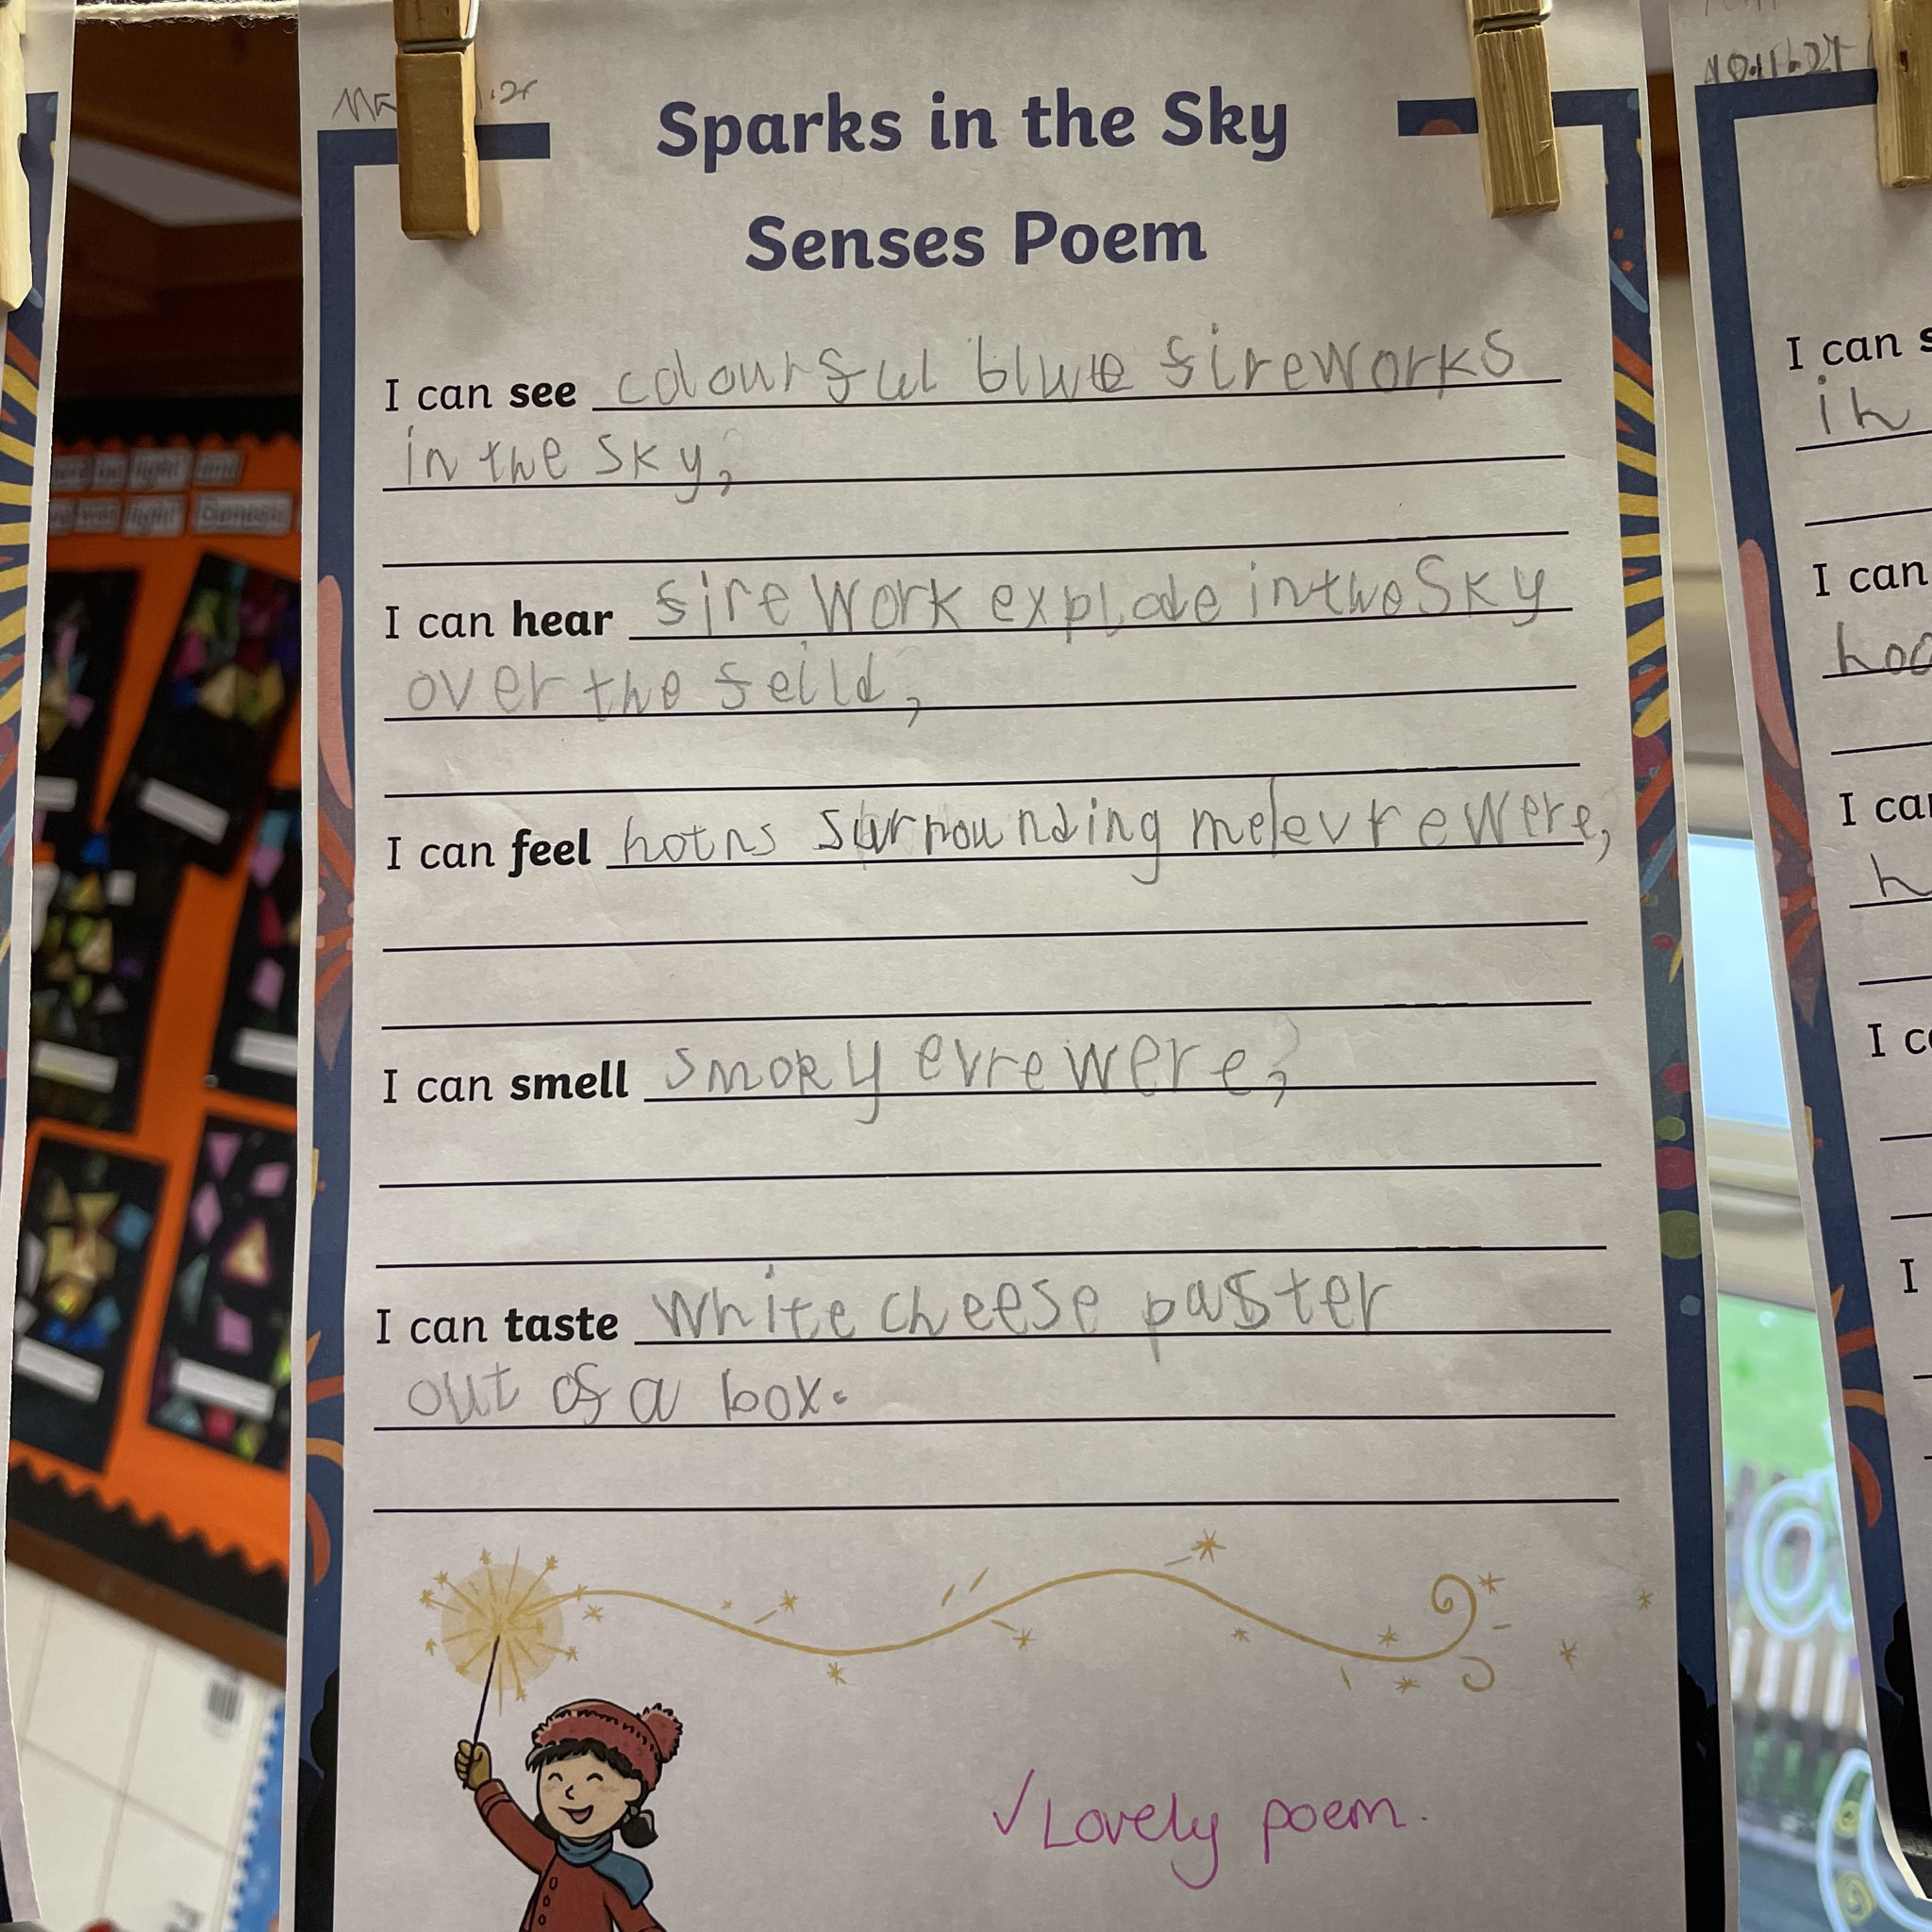 Sparks in the Sky
Senses Poem
I can see colourful blue fireworks
in the sky,
I can hear fire work explode in the Sky
over the feild,
I can feel hotns surrounding me evrewere,
I can smell smoky evrewere,
I can taste white cheese paster
out of a box.
✓ Lovely poem.
10.11.24
I can s
in
I can
hoo
I ca
h
I c
I
light and
light Genesis